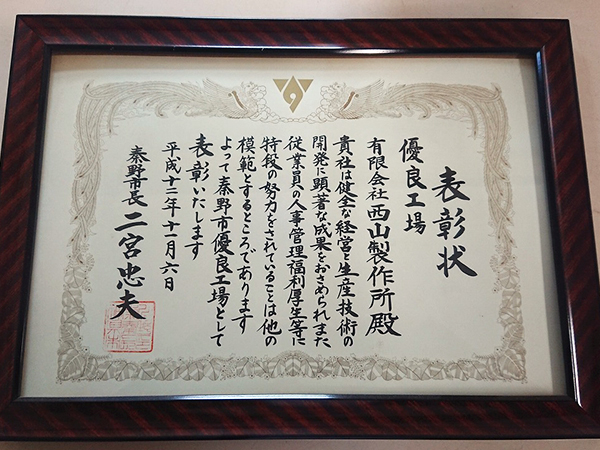 表彰状
優良工場
有限会社西山製作所殿
貴社は健全な経営と生産技術の
開発に顕著な成果をおさめられまた
従業員への人事管理福利厚生等に
特段の努力をされていることは他の
模範とするところであります
よって秦野市優良工場として
表彰いたします
平成十二年十一月六日
秦野市長 二宮忠夫